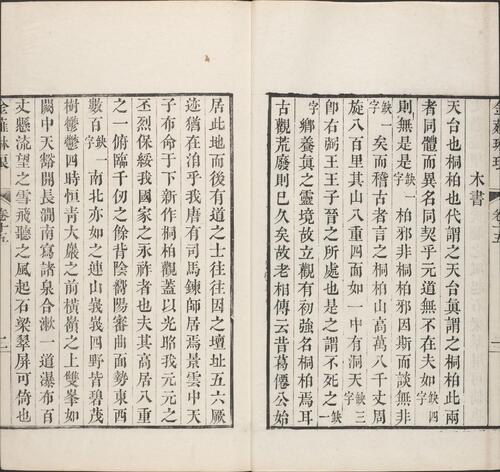 木書
天台也桐柏也代謂之天台眞謂之桐柏此兩
者同體而異名同契乎元道無不在夫如缺四字
則無是是缺一字柏邪非桐柏邪因斯而談無非
缺一字矣而稽古者言之桐柏山高萬八千丈周
旋八百里其山八重四面如一中有洞天缺三字
卽右弼王王子晉之所處也是之謂不死之缺一
字鄉養眞之靈境故立觀有初強名桐柏焉耳
古觀荒廢則已久矣故老相傳云昔葛僊公始
金薤琳琅
卷十五
居此地而後有道之士往往因之壇址五六厥
迹猶在洎乎我唐有司馬鍊師居焉景雲中天
子布命于下新作桐柏觀蓋以光昭我元元之
丕烈保綏我國家之永祚者也夫其高居八重
之一俯臨千仞之餘背陰嚮陽審曲面勢東西
數百缺一字南北亦如之連山峩峩四野皆碧茂
樹鬱鬱四時恒青大巖之前橫嶺之上雙峯如
闕中天豁開長澗南寫諸泉合漱一道瀑布百
丈懸流望之雪飛聽之風起石梁翠屏可倚也
金薤琳琅
卷十五
二